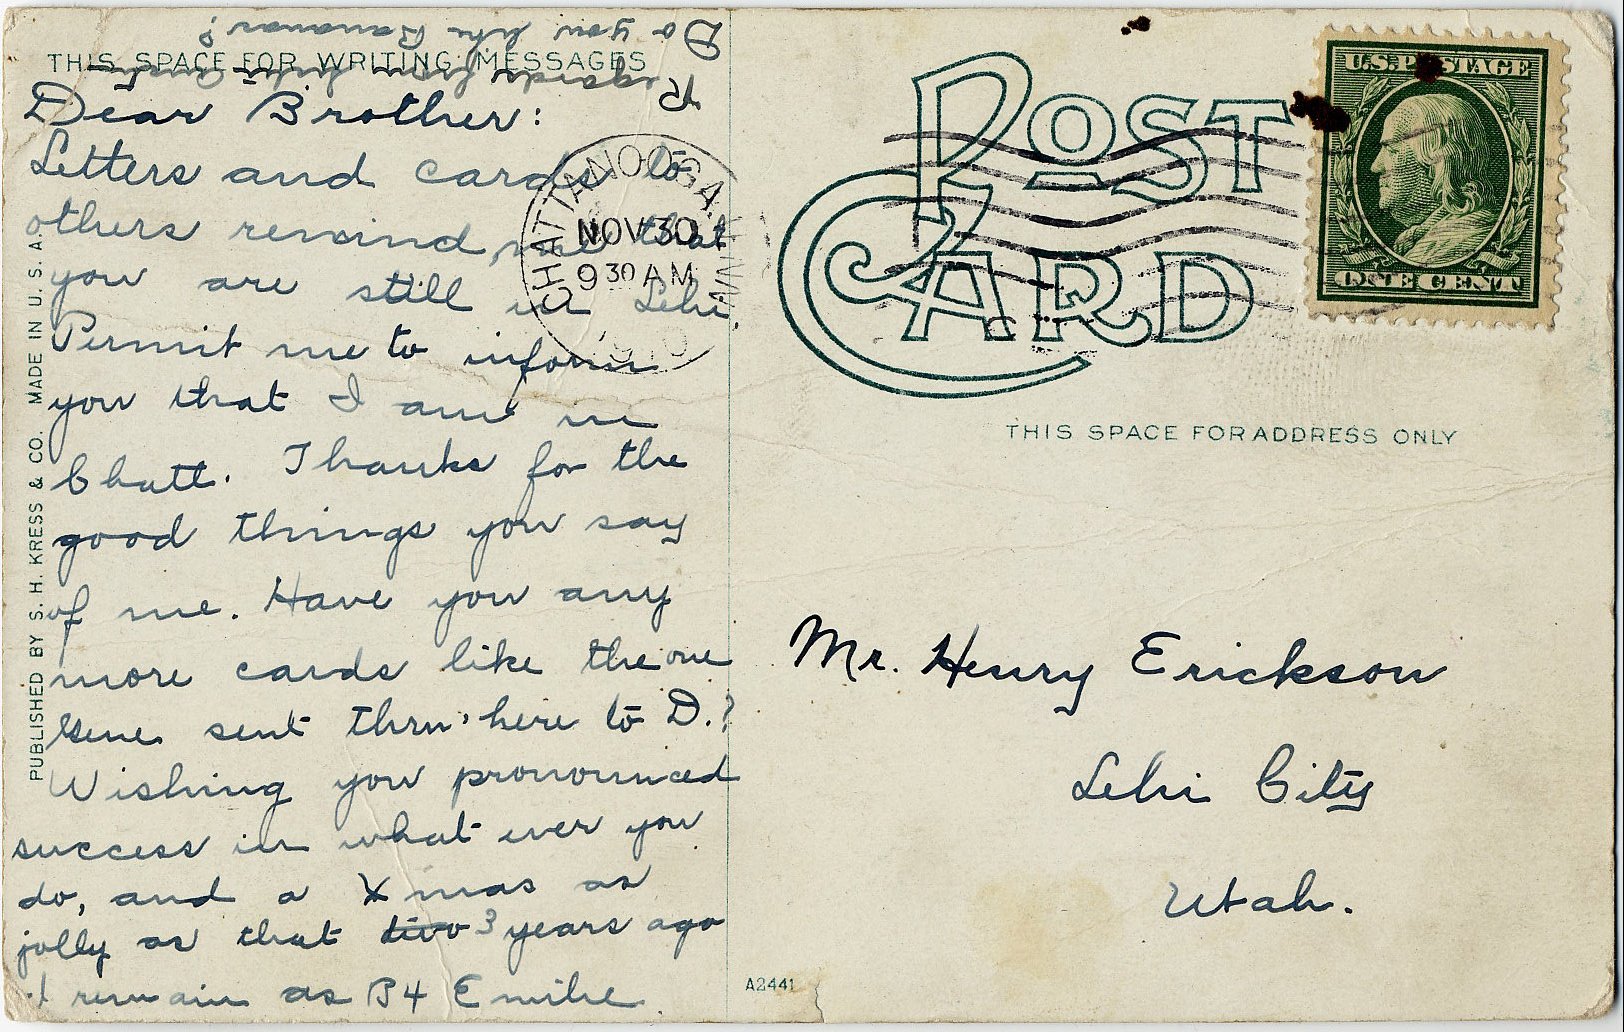 Do you like Bananas?
Regards from
THIS SPACE FOR WRITING MESSAGES
Dear Brother:
Letters and cards to
others remind me that
you are still in Lehi.
Permit me to inform
you that I am in
Chatt. Thanks for the
good things you say
of me. Have you any
more cards like the one
Gene sent thru' here to D.?
Wishing you pronounced
success in what ever you
do, and a Xmas as
jolly as that two 3 years ago
I remain as B4 Emilie
PUBLISHED BY S. H. KRESS & CO. MADE IN U. S. A.
CHATTANOOGA, TENN.
NOV 30
9 30 AM
1910
POST
CARD
U.S. POSTAGE
ONE CENT
THIS SPACE FOR ADDRESS ONLY
Mr. Henry Erickson
Lehi City
Utah.
A2441